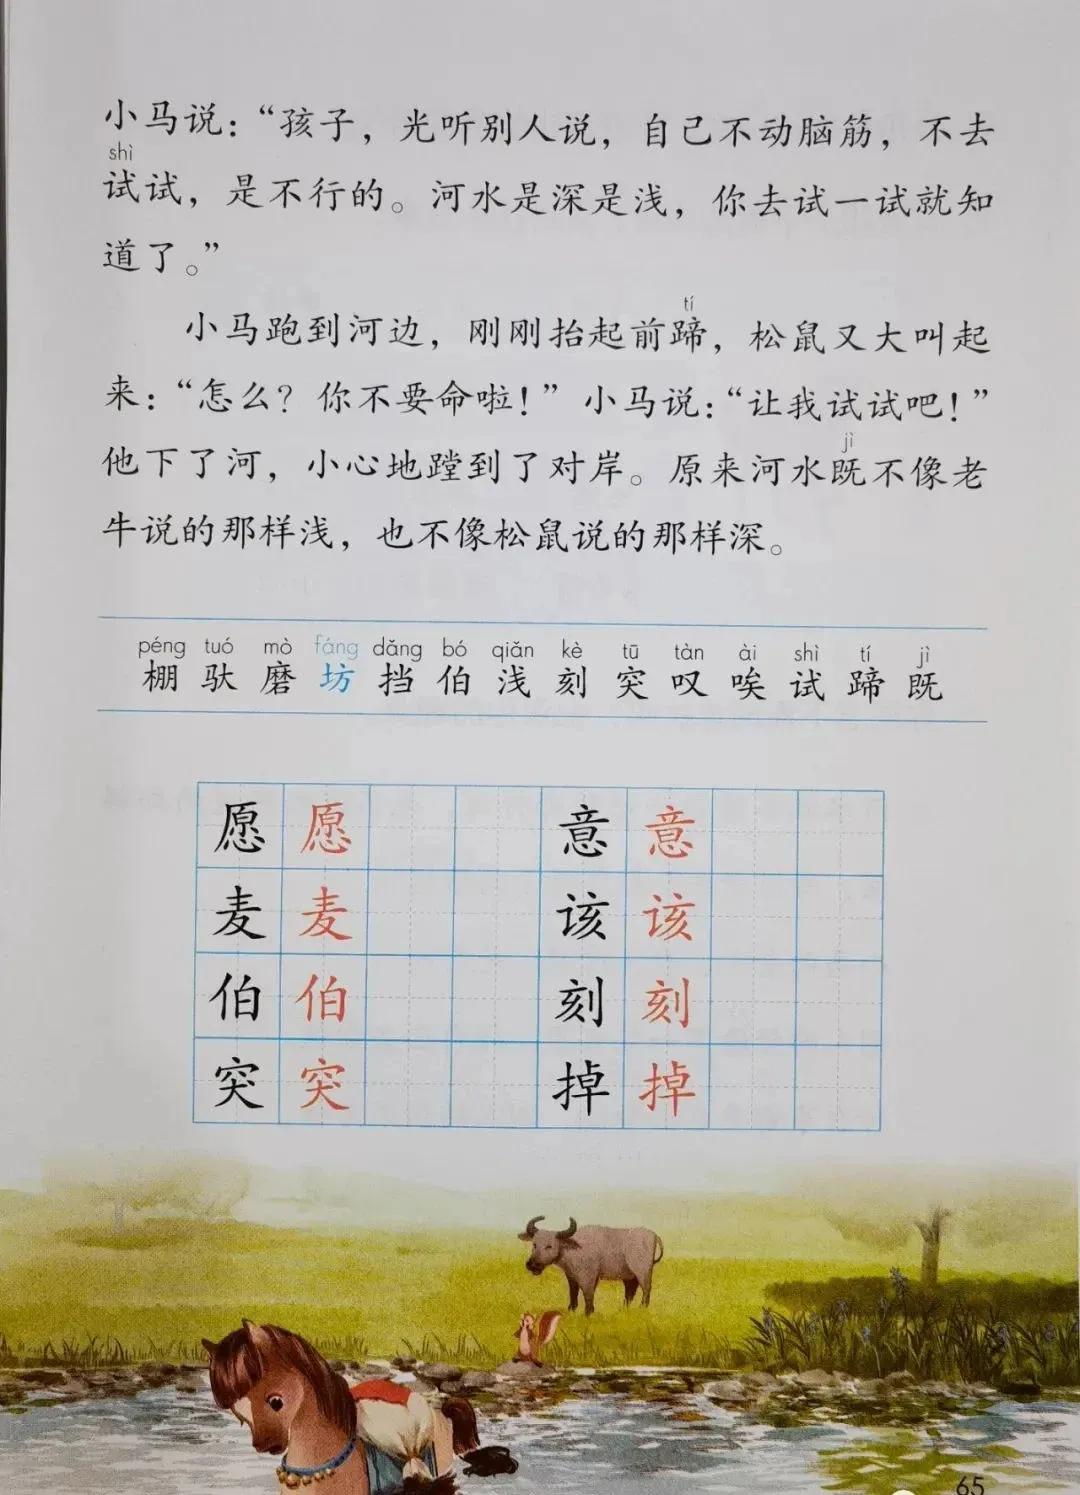 小马说：“孩子，光听别人说，自己不动脑筋，不去
shì
试试，是不行的。河水是深是浅，你去试一试就知
道了。”
tí
小马跑到河边，刚刚抬起前蹄，松鼠又大叫起
来：“怎么？你不要命啦！”小马说：“让我试试吧！”
jì
他下了河，小心地蹚到了对岸。原来河水既不像老
牛说的那样浅，也不像松鼠说的那样深。
péng tuó mò fáng dǎng bó qiǎn kè tū tàn ài shì tí jì
棚 驮 磨 坊 挡 伯 浅 刻 突 叹 唉 试 蹄 既
愿 愿 意 意
麦 麦 该 该
伯 伯 刻 刻
突 突 掉 掉
65